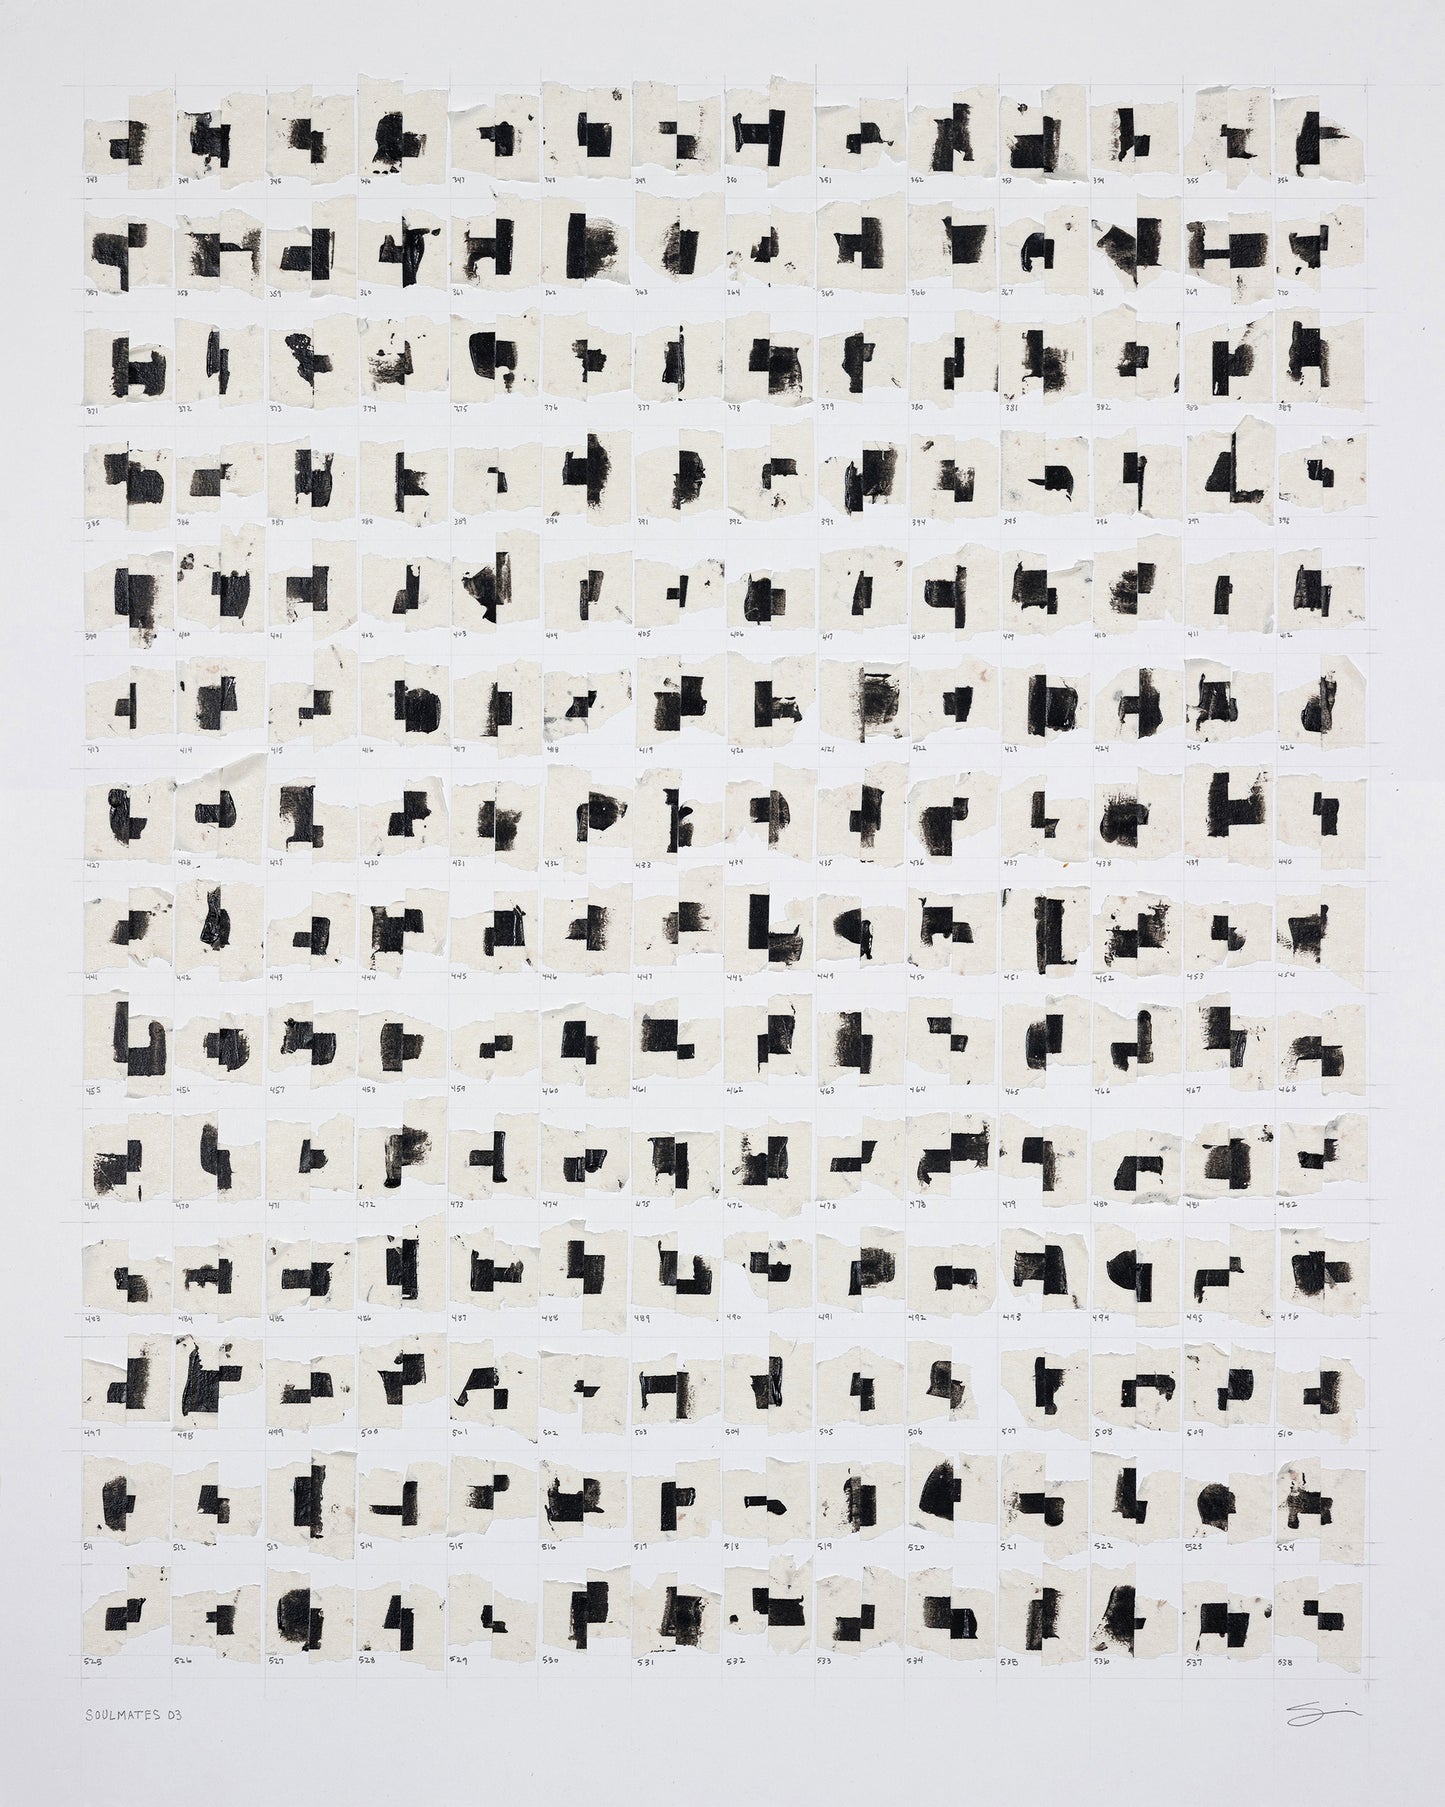 343 344 345 346 347 348 349 350 351 352 353 354 355 356
357 358 359 360 361 362 363 364 365 366 367 368 369 370
371 372 373 374 375 376 377 378 379 380 381 382 383 384
385 386 387 388 389 390 391 392 393 394 395 396 397 398
399 400 401 402 403 404 405 406 407 408 409 410 411 412
413 414 415 416 417 418 419 420 421 422 423 424 425 426
427 428 429 430 431 432 433 434 435 436 437 438 439 440
441 442 443 444 445 446 447 448 449 450 451 452 453 454
455 456 457 458 459 460 461 462 463 464 465 466 467 468
469 470 471 472 473 474 475 476 478 478 479 480 481 482
483 484 485 486 487 488 489 490 491 492 493 494 495 496
497 498 499 500 501 502 503 504 505 506 507 508 509 510
511 512 513 514 515 516 517 518 519 520 521 522 523 524
525 526 527 528 529 530 531 532 533 534 535 536 537 538
SOULMATES 03